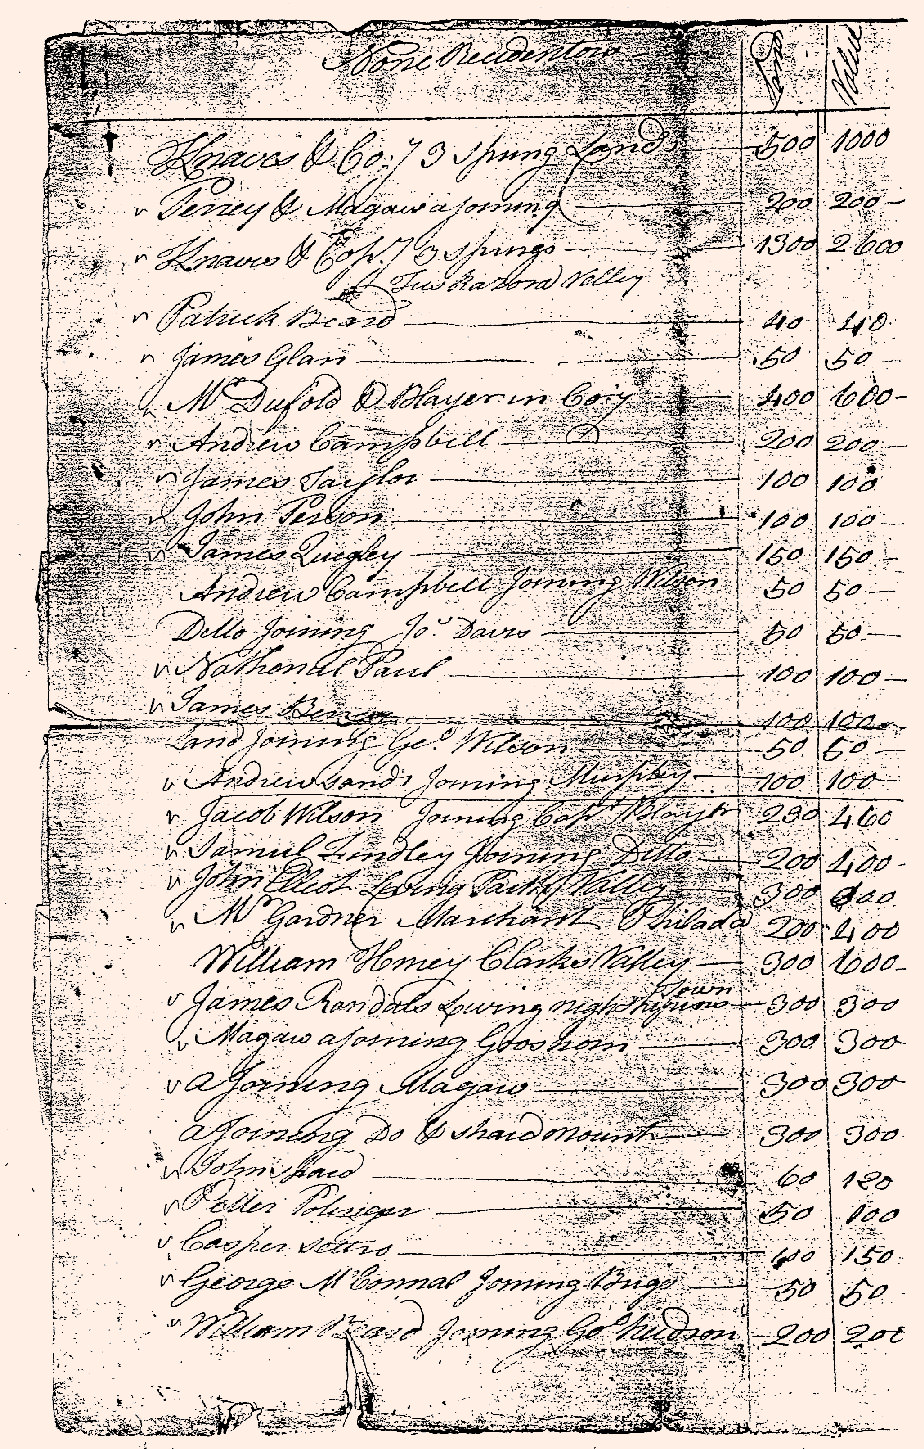 None Residentors Land Value
Knaves & Co. 7 3 Spring Land 500 1000
v Perrey & Magaw a Joining 200 200
v Knaves & Cop. 7 3 Springs 1300 2600
Tuskarora Valley
v Patrick Beard 40 40
v James Glan 50 50
v Mr Dufold & Blayer in Coy 400 600
v Andrew Campbell 200 200
v James Taylor 100 100
v John Person 100 100
v James Quegley 150 150
Andrew Campbell Joining Wilson 50 50
Ditto Joining Jos Davis 50 50
v Nathenal Paul 100 100
v James 100 100
Land Joining Geo. Wilson 50 50
v Andrew Lands Joining Murphy 100 100
v Jacob Wilson Joining Capt Blayer 230 460
v Samuel Lindley Joining Ditto 200 400
v John Elliot Living Valley 300 600
v Mr Gardner Marchant Philada 200 400
William Henrey Clarks Valley 300 600
v James Randals Living nigh Town 300 300
v Magaw a Joining Gooshorn 300 300
v a Joining Magaw 300 300
a Joining Do & Shaid mount 300 300
v John Shaid 60 120
v Petter 50 100
v Casper 150
v George McConnal Joining Brigs 50 50
v William Beard Joining Geo Hudson 200 200